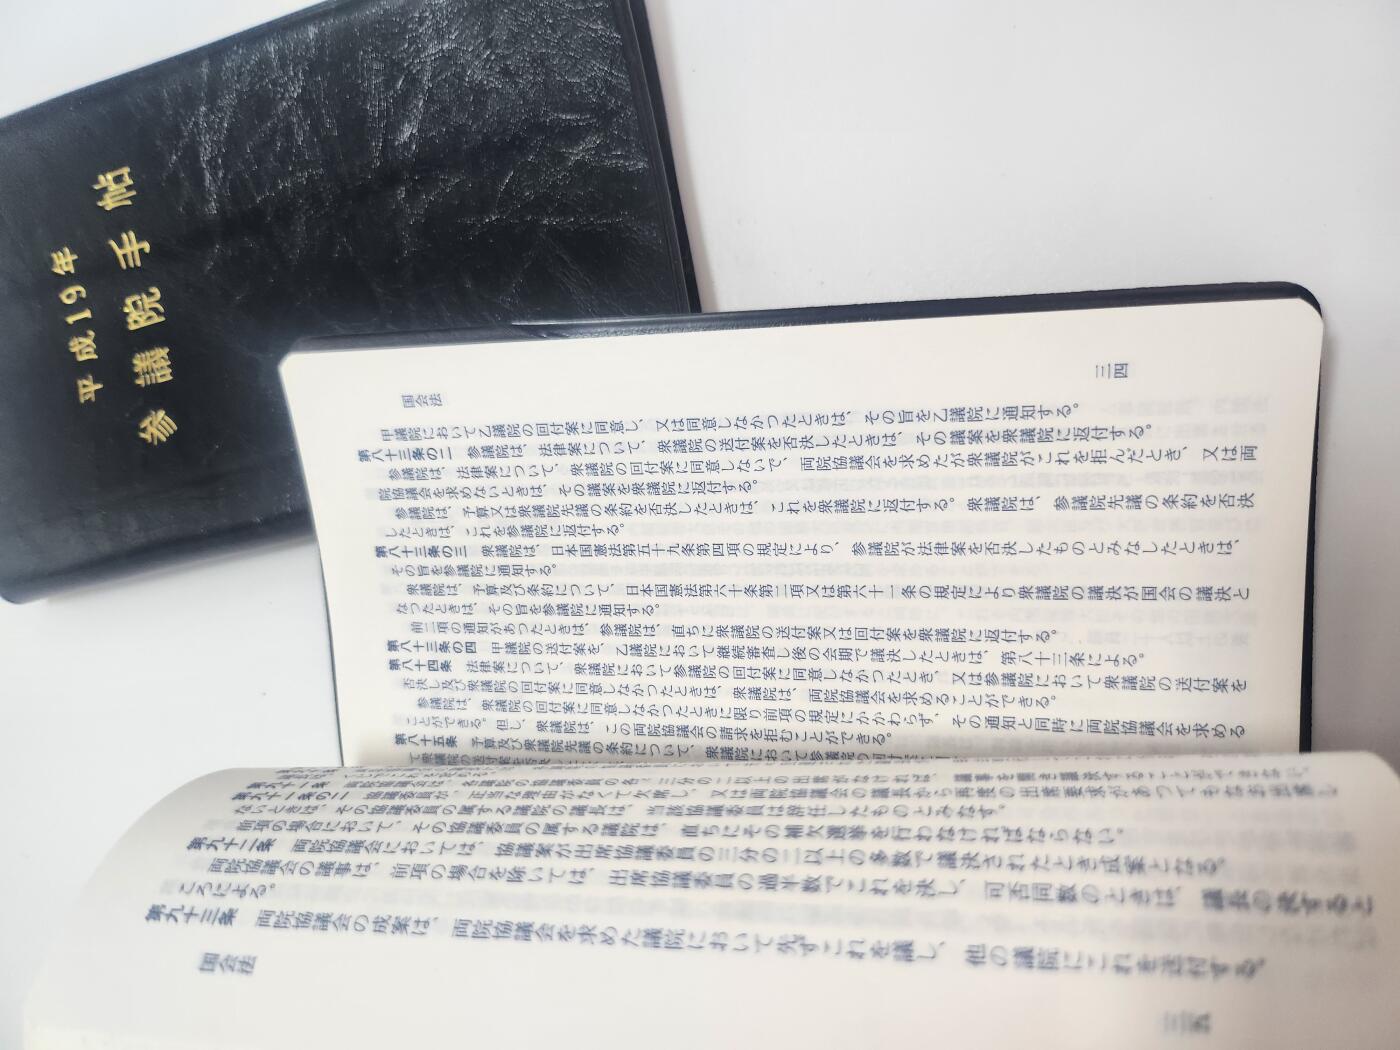 平成19年
参議院手帖
国会法
三四
甲議院において乙議院の回付案に同意し、又は同意しなかつたときは、その旨を乙議院に通知する。
第八十三条の二 参議院は、法律案について、衆議院の送付案を否決したときは、その議案を衆議院に返付する。
参議院は、法律案について、衆議院の回付案に同意しないで、両院協議会を求めたが衆議院がこれを拒んだとき、又は両
院協議会を求めないときは、その議案を衆議院に返付する。
参議院は、予算又は衆議院先議の条約を否決したときは、これを衆議院に返付する。衆議院は、参議院先議の条約を否決
したときは、これを参議院に返付する。
第八十三条の三 衆議院は、日本国憲法第五十九条第四項の規定により、参議院が法律案を否決したものとみなしたときは、
その旨を参議院に通知する。
衆議院は、予算及び条約について、日本国憲法第六十条第二項又は第六十一条の規定により衆議院の議決が国会の議決と
なつたときは、その旨を参議院に通知する。
前二項の通知があつたときは、参議院は、直ちに衆議院の送付案又は回付案を衆議院に返付する。
第八十三条の四 甲議院の送付案を、乙議院において継続審査し後の会期で議決したときは、第八十三条による。
第八十四条 法律案について、衆議院において参議院の回付案に同意しなかつたとき、又は参議院において衆議院の送付案を
否決し及び衆議院の回付案に同意しなかつたときは、衆議院は、両院協議会を求めることができる。
参議院は、衆議院の回付案に同意しなかつたときに限り前項の規定にかかわらず、その通知と同時に両院協議会を求める
ことができる。但し、衆議院は、この両院協議会の請求を拒むことができる。
第八十五条 予算及び衆議院先議の条約について、衆議院において参議院の回付案
第九十一条の二 協議委員が、正当な理由がなくて欠席し、又は両院協議会の議長から再度の出席要求があつてもなお出席し
ないときは、その協議委員の属する議院の議長は、当該協議委員は辞任したものとみなす。
前項の場合において、その協議委員の属する議院は、直ちにその補欠選挙を行わなければならない。
第九十二条 両院協議会においては、協議案が出席協議委員の三分の二以上の多数で議決されたとき成案となる。
両院協議会の議事は、前項の場合を除いては、出席協議委員の過半数でこれを決し、可否同数のときは、議長の決すると
ころによる。
第九十三条 両院協議会の成案は、両院協議会を求めた議院において先ずこれを議し、他の議院にこれを送付する。
国会法
三五